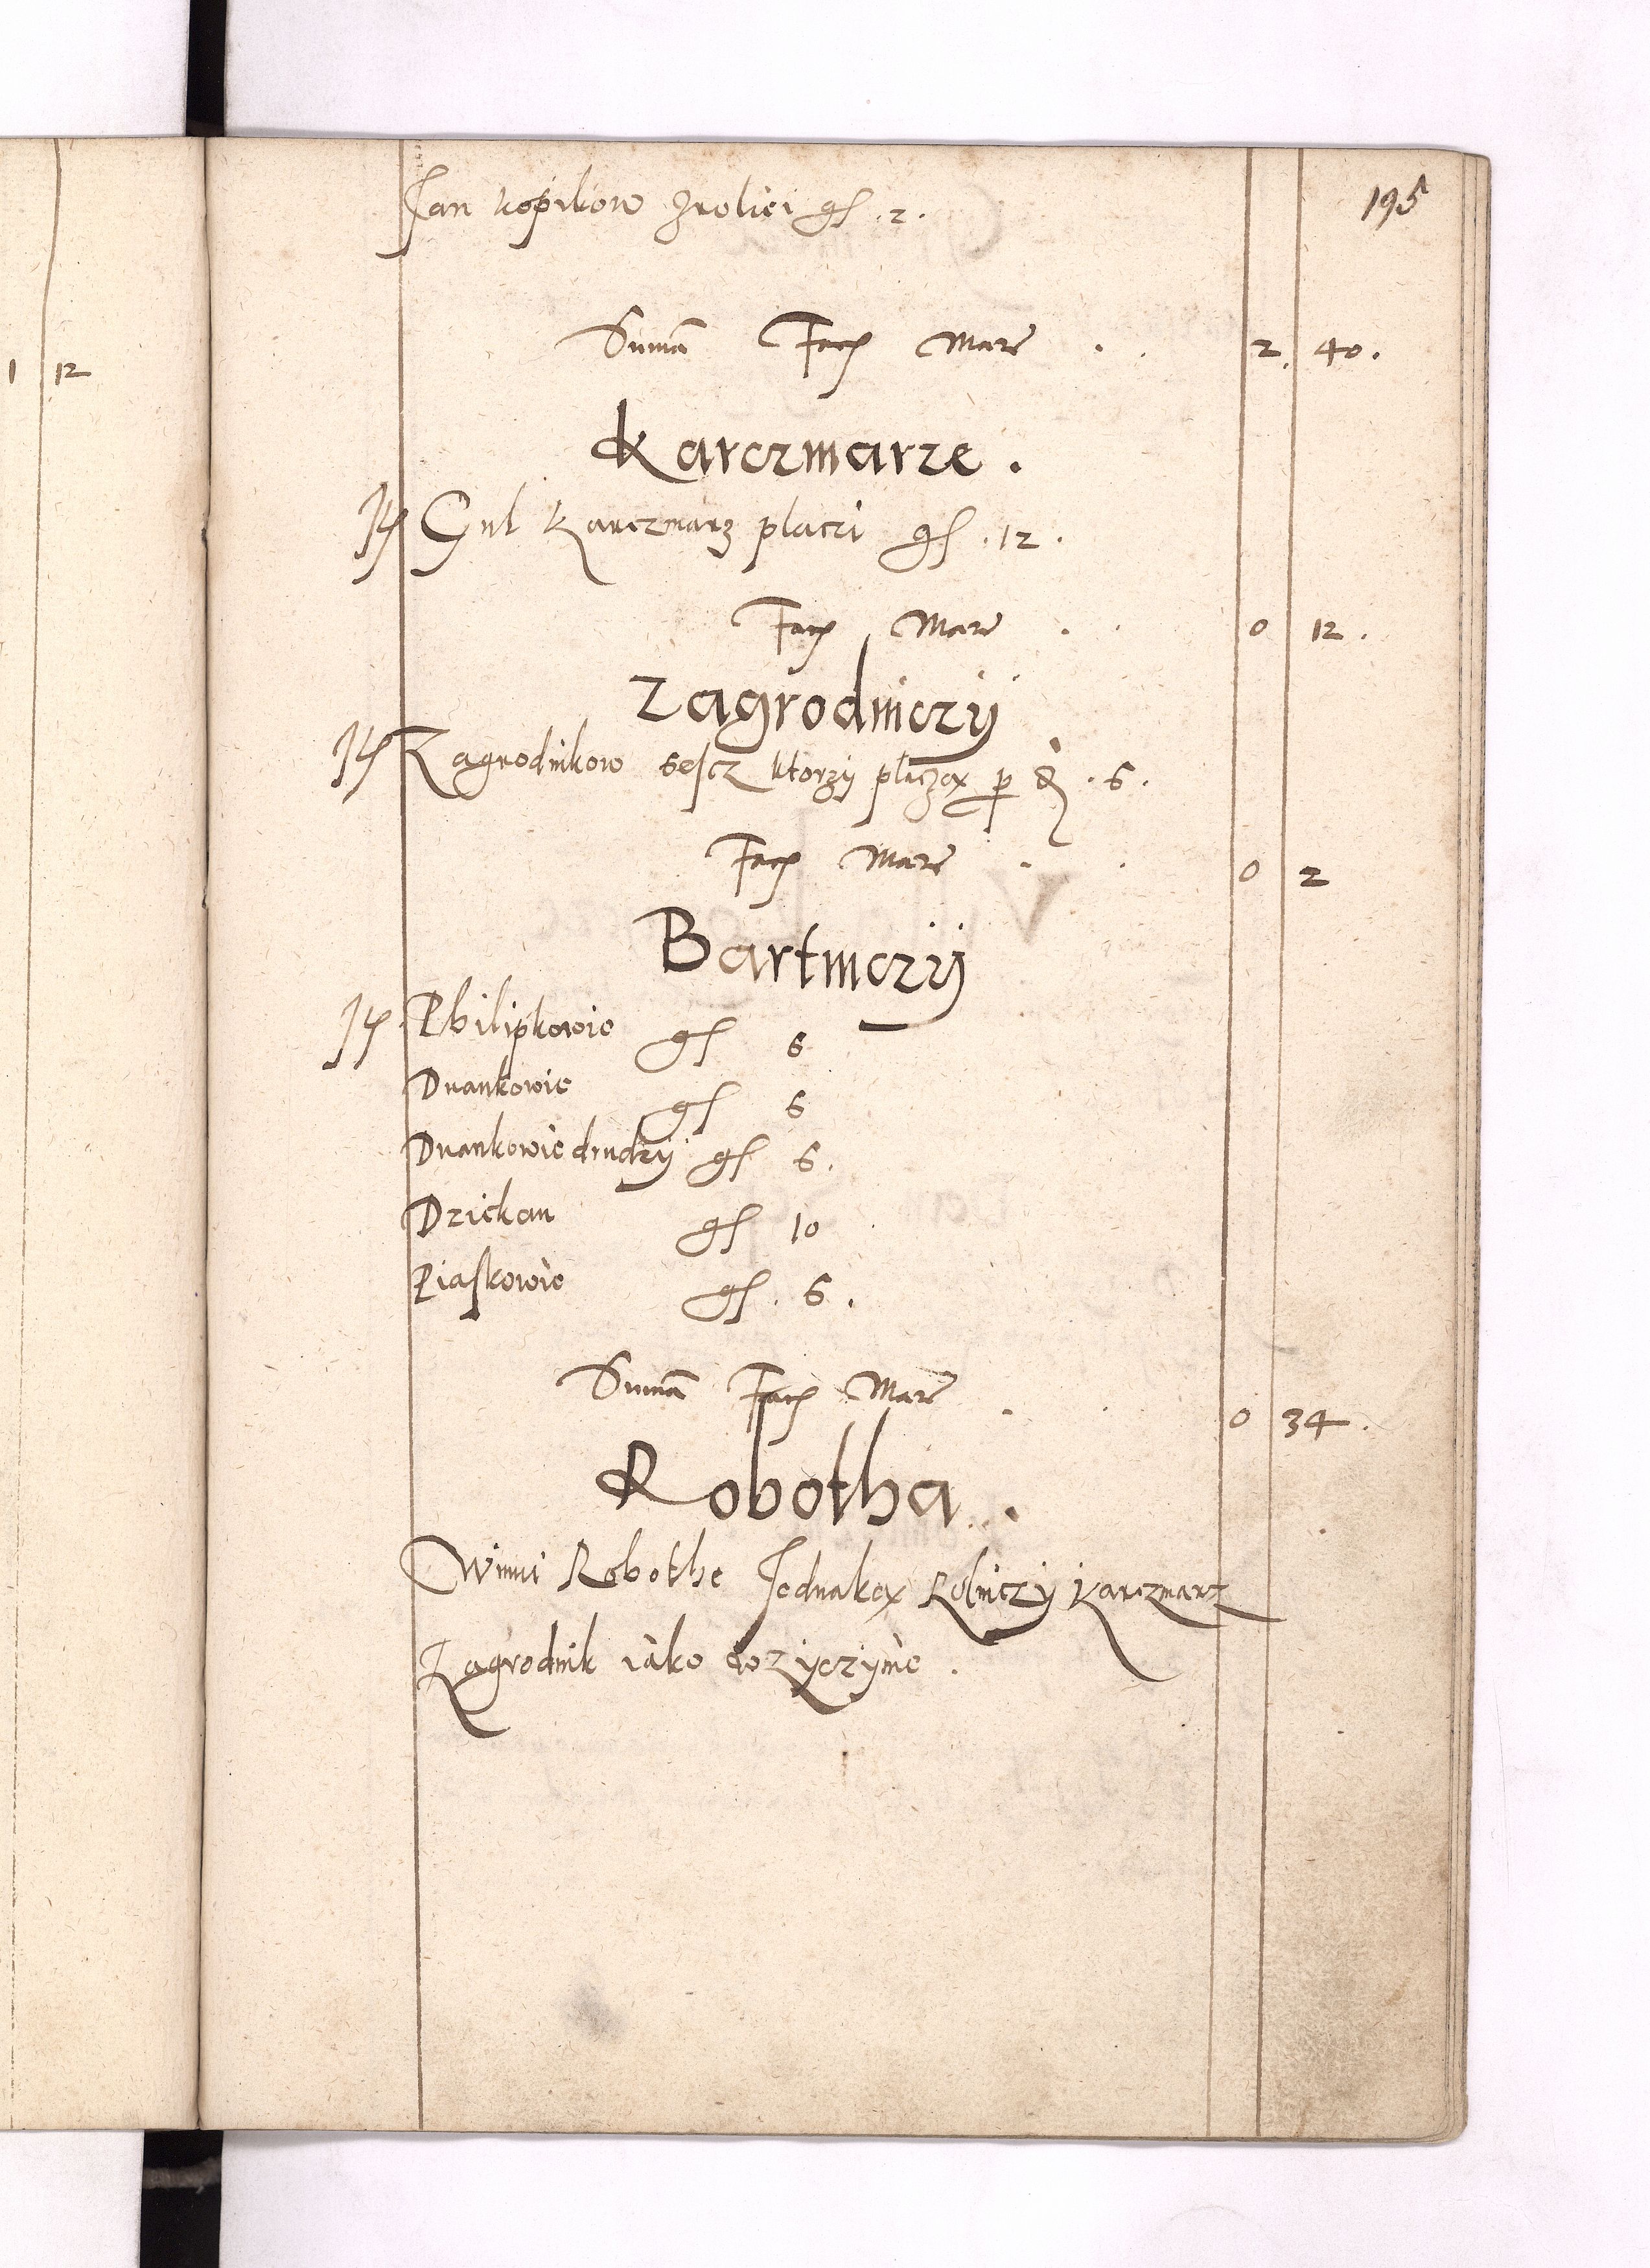 195
Jan kopikow zroliei gs. 2.
Suma Facit Marc . . 2. 40.
1 12
Karczmarze.
Jtem Gul Karczmarz placzi gs. 12.
Facit Marc . . 0 12.
Zagrodniczÿ
Jtem Zagrodnikow sescz ktorzÿ placzą p d. 6.
Facit Marc . . 0 2
Bartniczÿ
Jtem Philipkowie gs 6
Duankowie gs 6
Duankowie drudzÿ gs 6.
Dzickan gs 10
Piaskowie gs. 6.
Suma Facit Marc . . 0 34.
Robotha.
Winni Robothe Jednaką Rolniczÿ Karczmarz
Zagrodnik iako